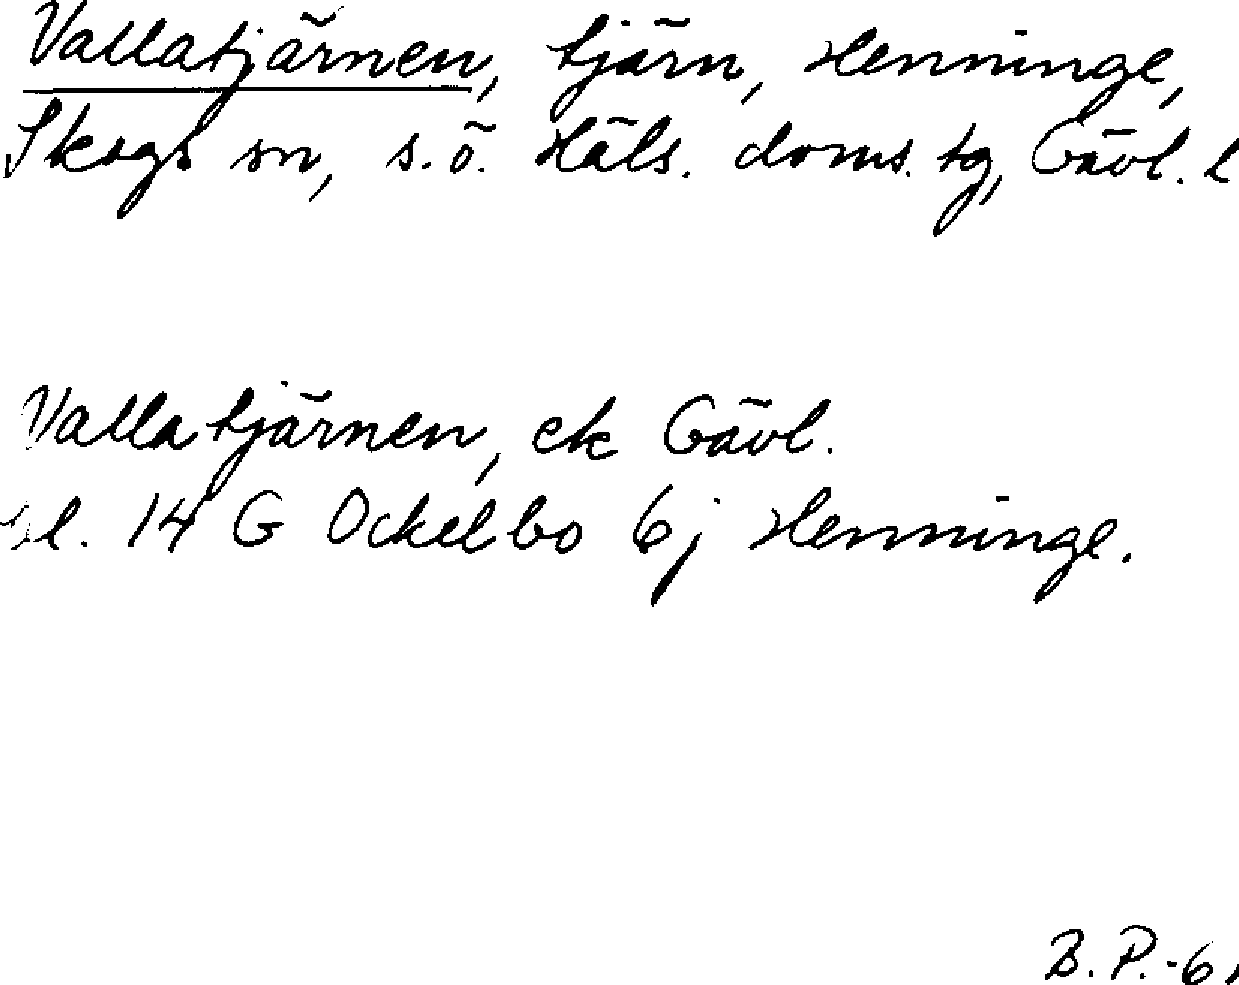 Vallatjärnen, tjärn, Henninge,
Skogs sn, s.ö. Häls. doms. tg, Gävl. l
Vallatjärnen, ek Gävl.
bl. 14 G Ockelbo 6j Henninge.
B. P. -61